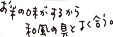 お米の味がするから
和風の具とよく合う。